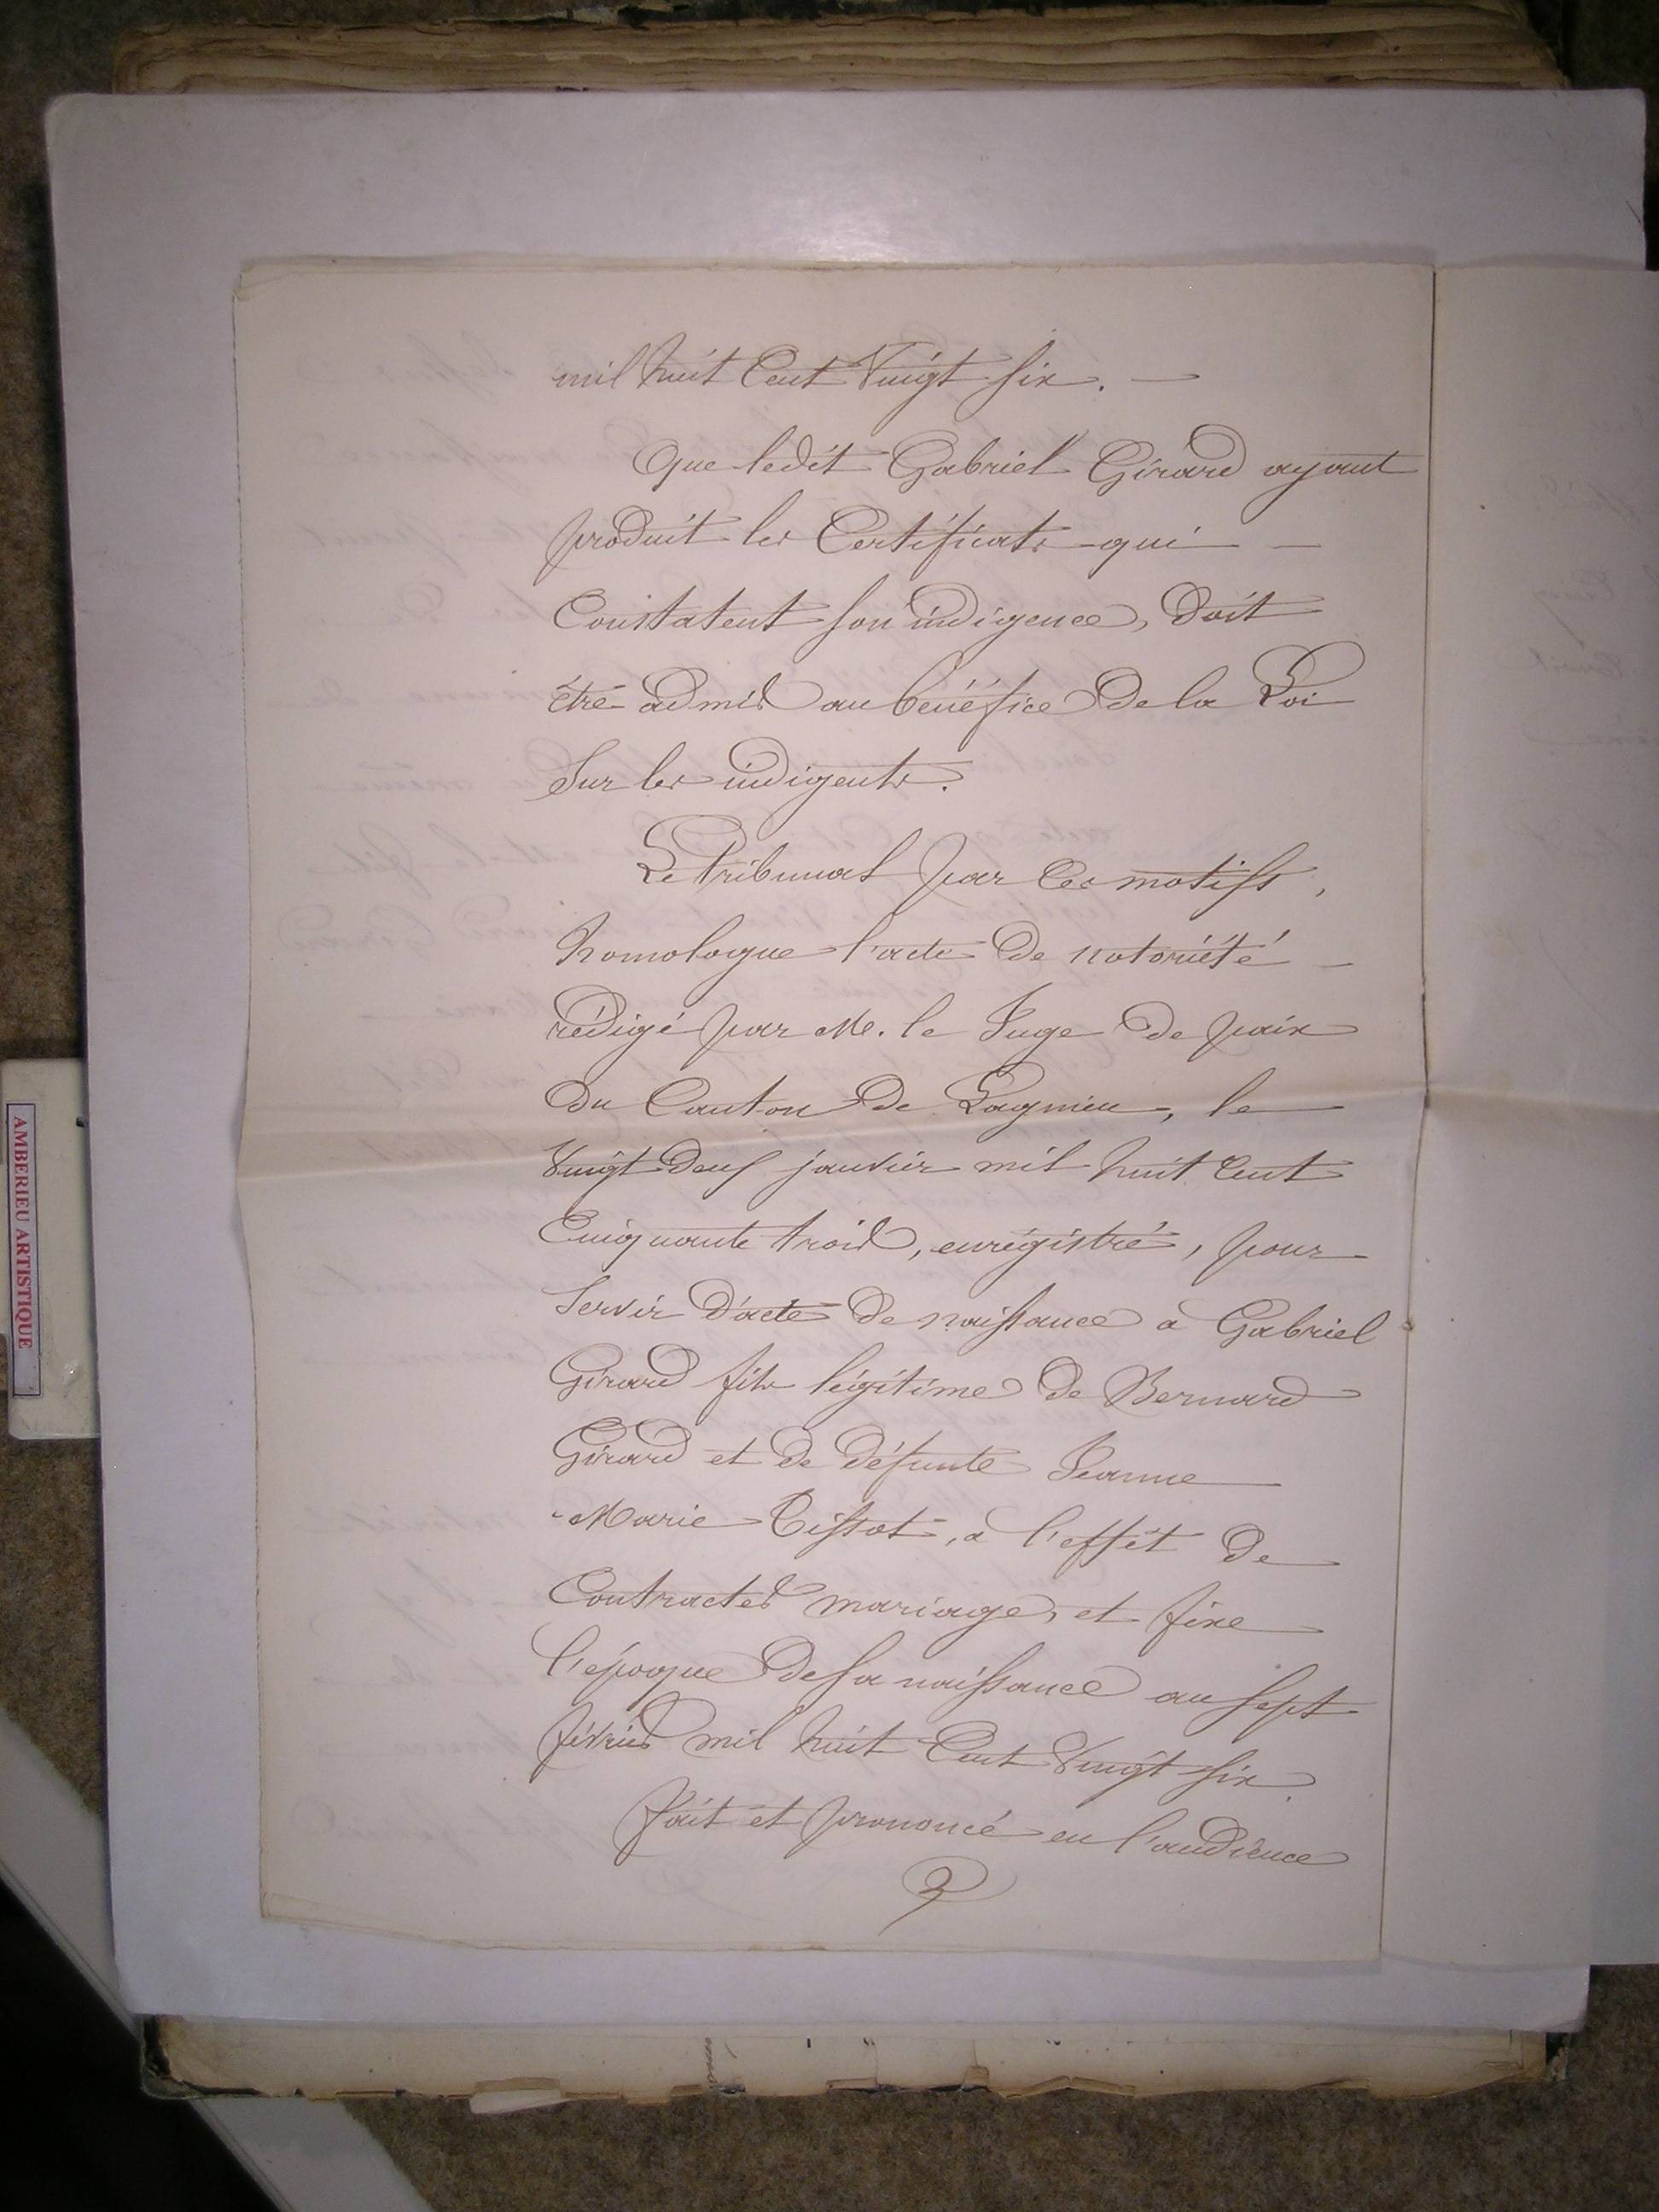 mil huit Cent Vingt six. —
Que ledit Gabriel Girard ayant
produit les Certificats qui —
Constatent son indigence, doit
être admis au bénéfice de la Loi
Sur les indigents.
Le Tribunal par Ces motifs,
homologue l'acte de notoriété —
rédigé par M. le Juge de paix
du Canton de Lagnieu, le
Vingt deux janvier mil huit Cent
Cinquante trois, enrégistré, pour
Servir d'acte de naissance a Gabriel
Girard fils légitime de Bernard
Girard et de défunte Jeanne
Marie Tissot, a l'effet de
Contracter mariage, et fixe
l'époque de sa naissance au sept
février mil huit Cent Vingt six.
Fait et prononcé en l'audience
AMBERIEU ARTISTIQUE